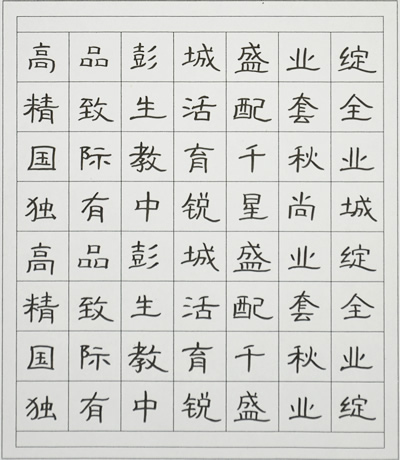 高品彭城盛业绽
精致生活配套全
国际教育千秋业
独有中锐星尚城
高品彭城盛业绽
精致生活配套全
国际教育千秋业
独有中锐盛业绽